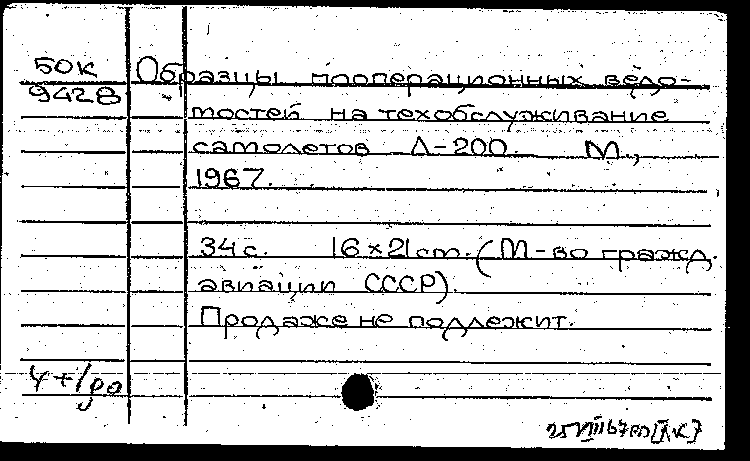 50К
9428
Образцы пооперационных ведо-
мостей на техобслуживание
самолетов Л-200. М.,
1967.
34 с. 16 x 21 cm. (М-во гражд.
авиации СССР).
Продаже не подлежит.
25 VIII 67